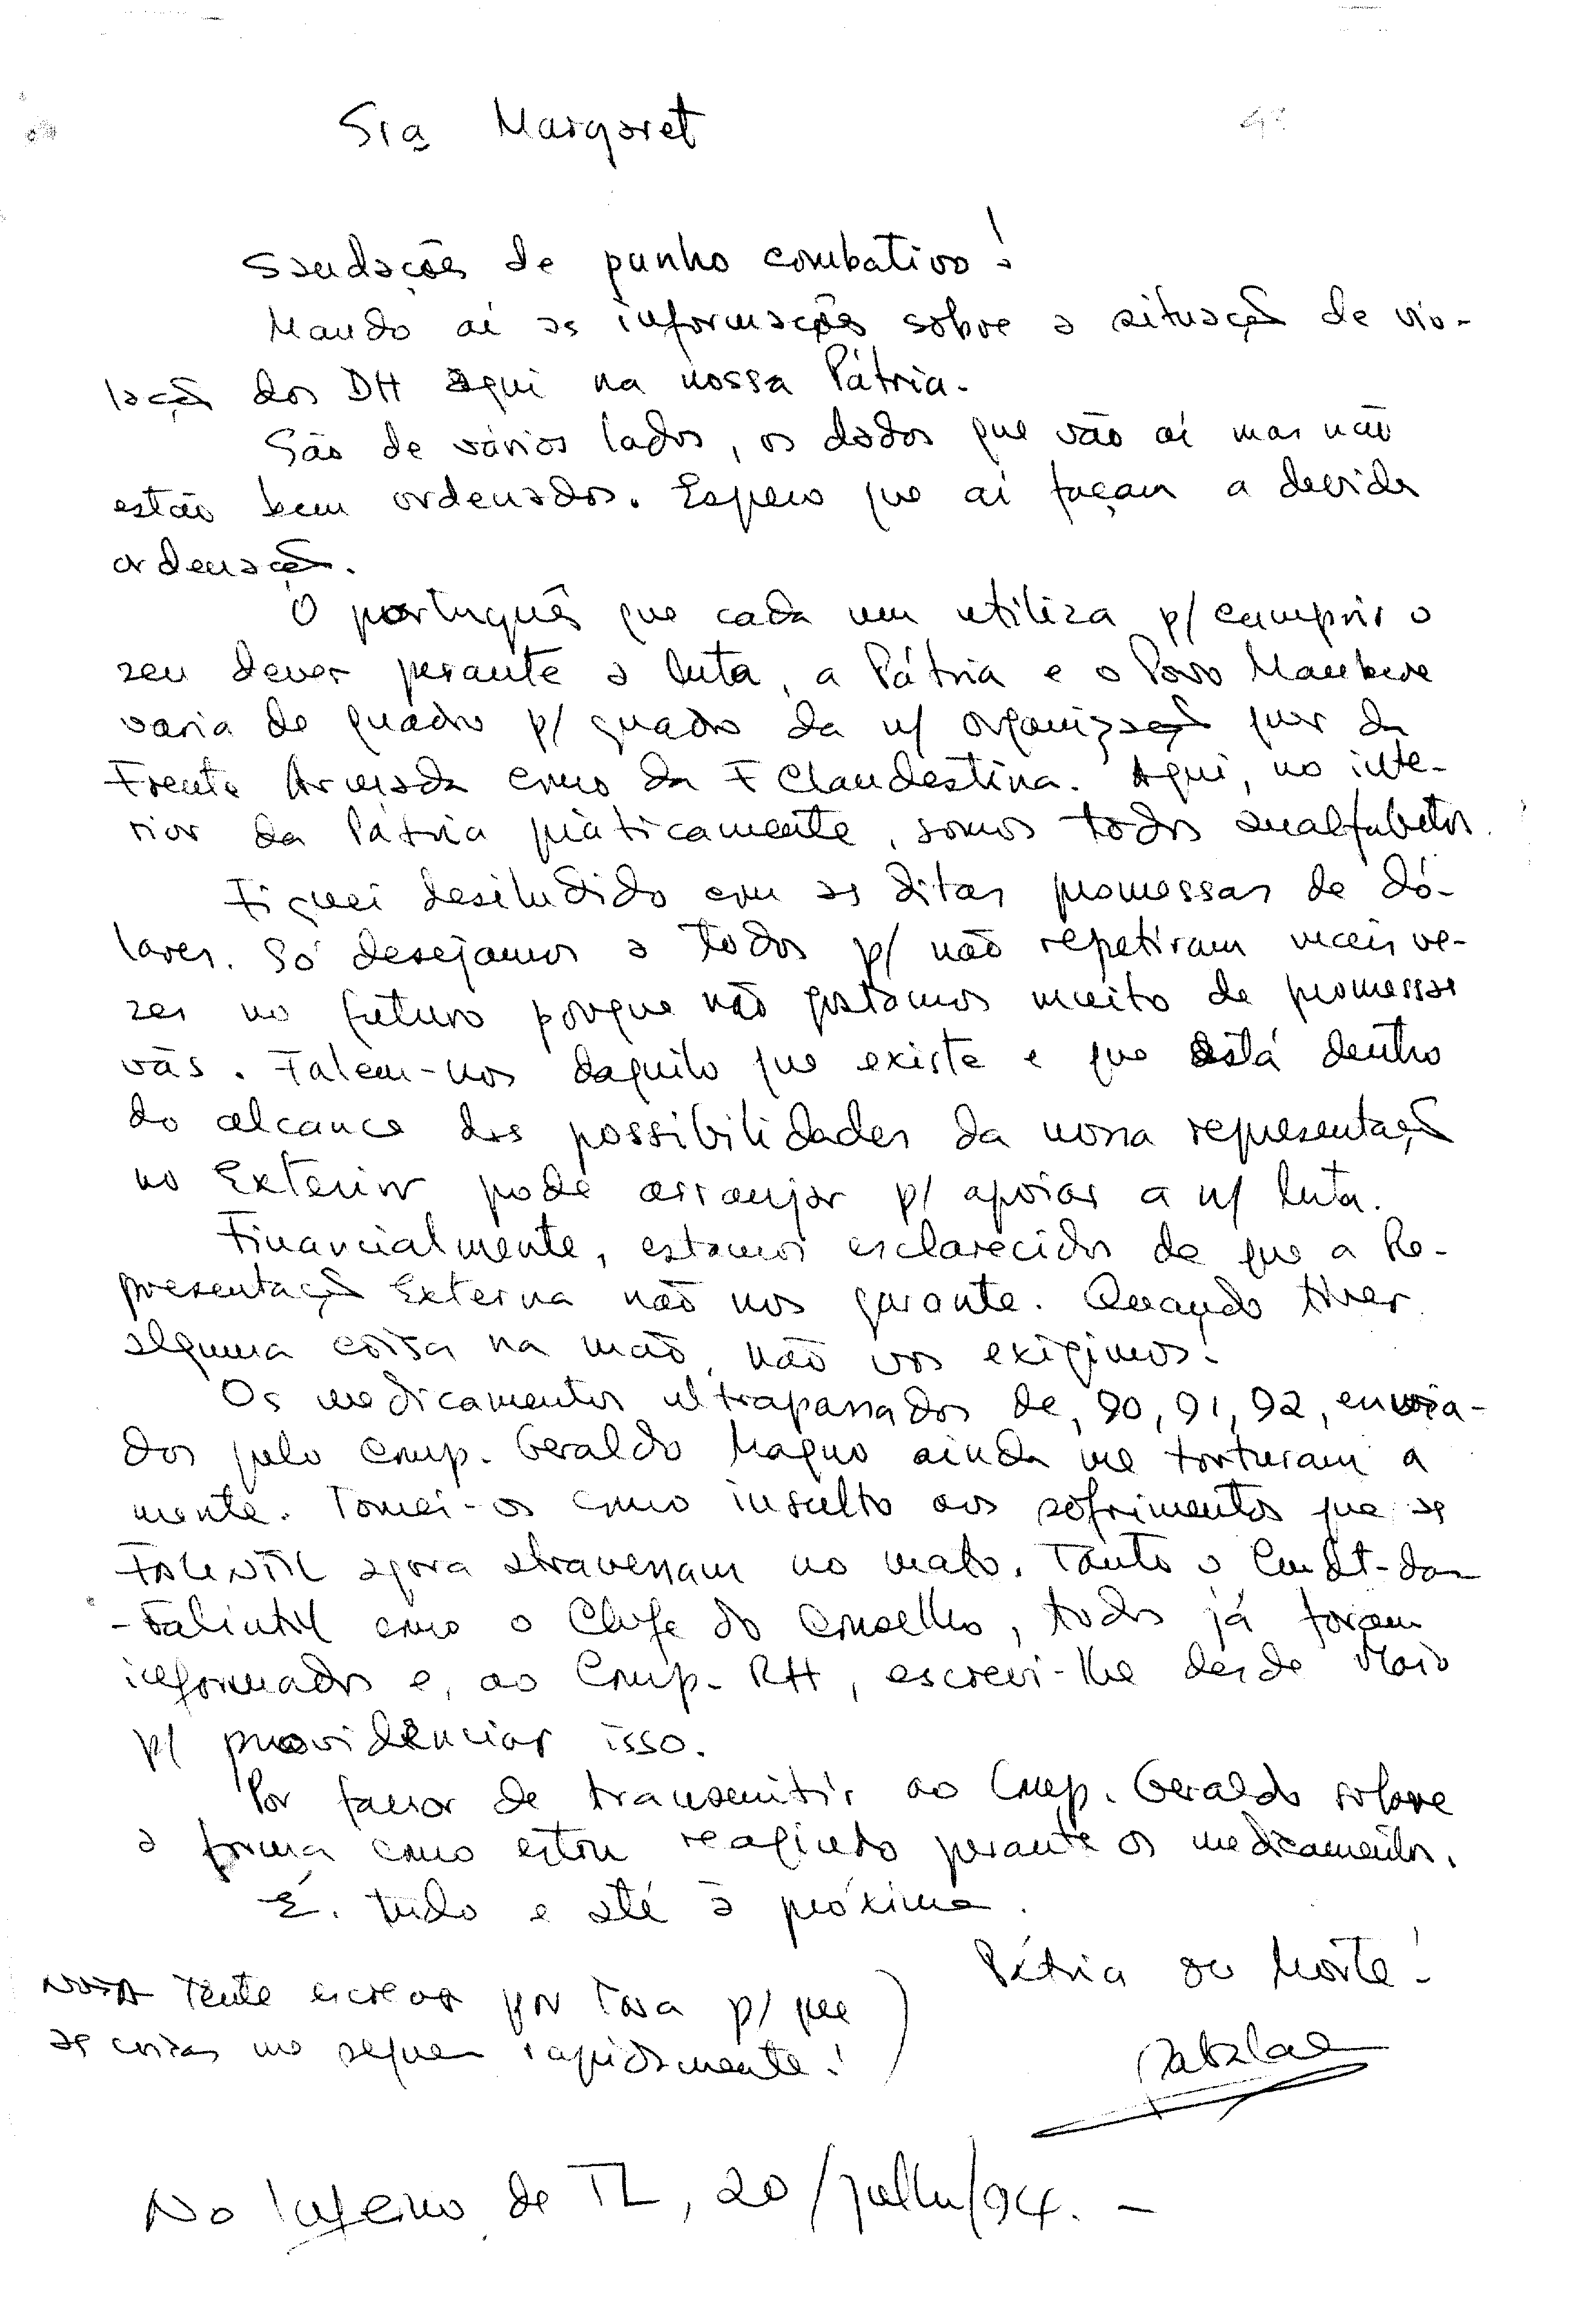 Sra Margaret
Saudações de punho combativo!
Mando aí as informações sobre a situação de vio-
lação dos DH aqui na nossa Pátria.
São de vários lados, os dados que vão aí mas não
estão bem ordenados. Espero que aí façam a devida
ordenação.
O português que cada um utiliza p/ cumprir o
seu dever perante a luta, a Pátria e o Povo Maubere
varia de quadro p/ quadro da n/ organização quer da
Frente Armada como da F Clandestina. Aqui, no inte-
rior da Pátria práticamente, somos todos analfabetos.
Fiquei desiludido com as ditas promessas de dó-
lares. Só desejamos a todos p/ não repetiram mais ve-
zes no futuro porque não gostamos muito de promessas
vãs. Falem-nos daquilo que existe e que está dentro
do alcance das possibilidades da nossa representação
no Exterior pode arranjar p/ apoiar a n/ luta.
Financialmente, estamos esclarecidos de que a Re-
presentação Externa não nos garante. Quando tiver
alguma coisa na mão, não vos exigimos!
Os medicamentos ultrapassados de, 90, 91, 92, envia-
dos pelo Comp. Geraldo Magno ainda me torturam a
mente. Tomei-os como insulto aos sofrimentos que as
FALINTIL agora atravessam no mato. Tanto o Cmdt-das
-Falintil como o Chefe do Conselho, todos já foram
informados e, ao Comp. RH, escrevi-lhe desde Maio
p/ providênciar isso.
Por favor de transmitir ao Comp. Geraldo sobre
a forma como estou reagindo perante os medicamentos.
É. tudo e até à próxima.
Pátria ou Morte!
NOTA Tente escrever por p/ que
as coisas me rapidamente!
No Inferno de TL, 20/Julho/94. -